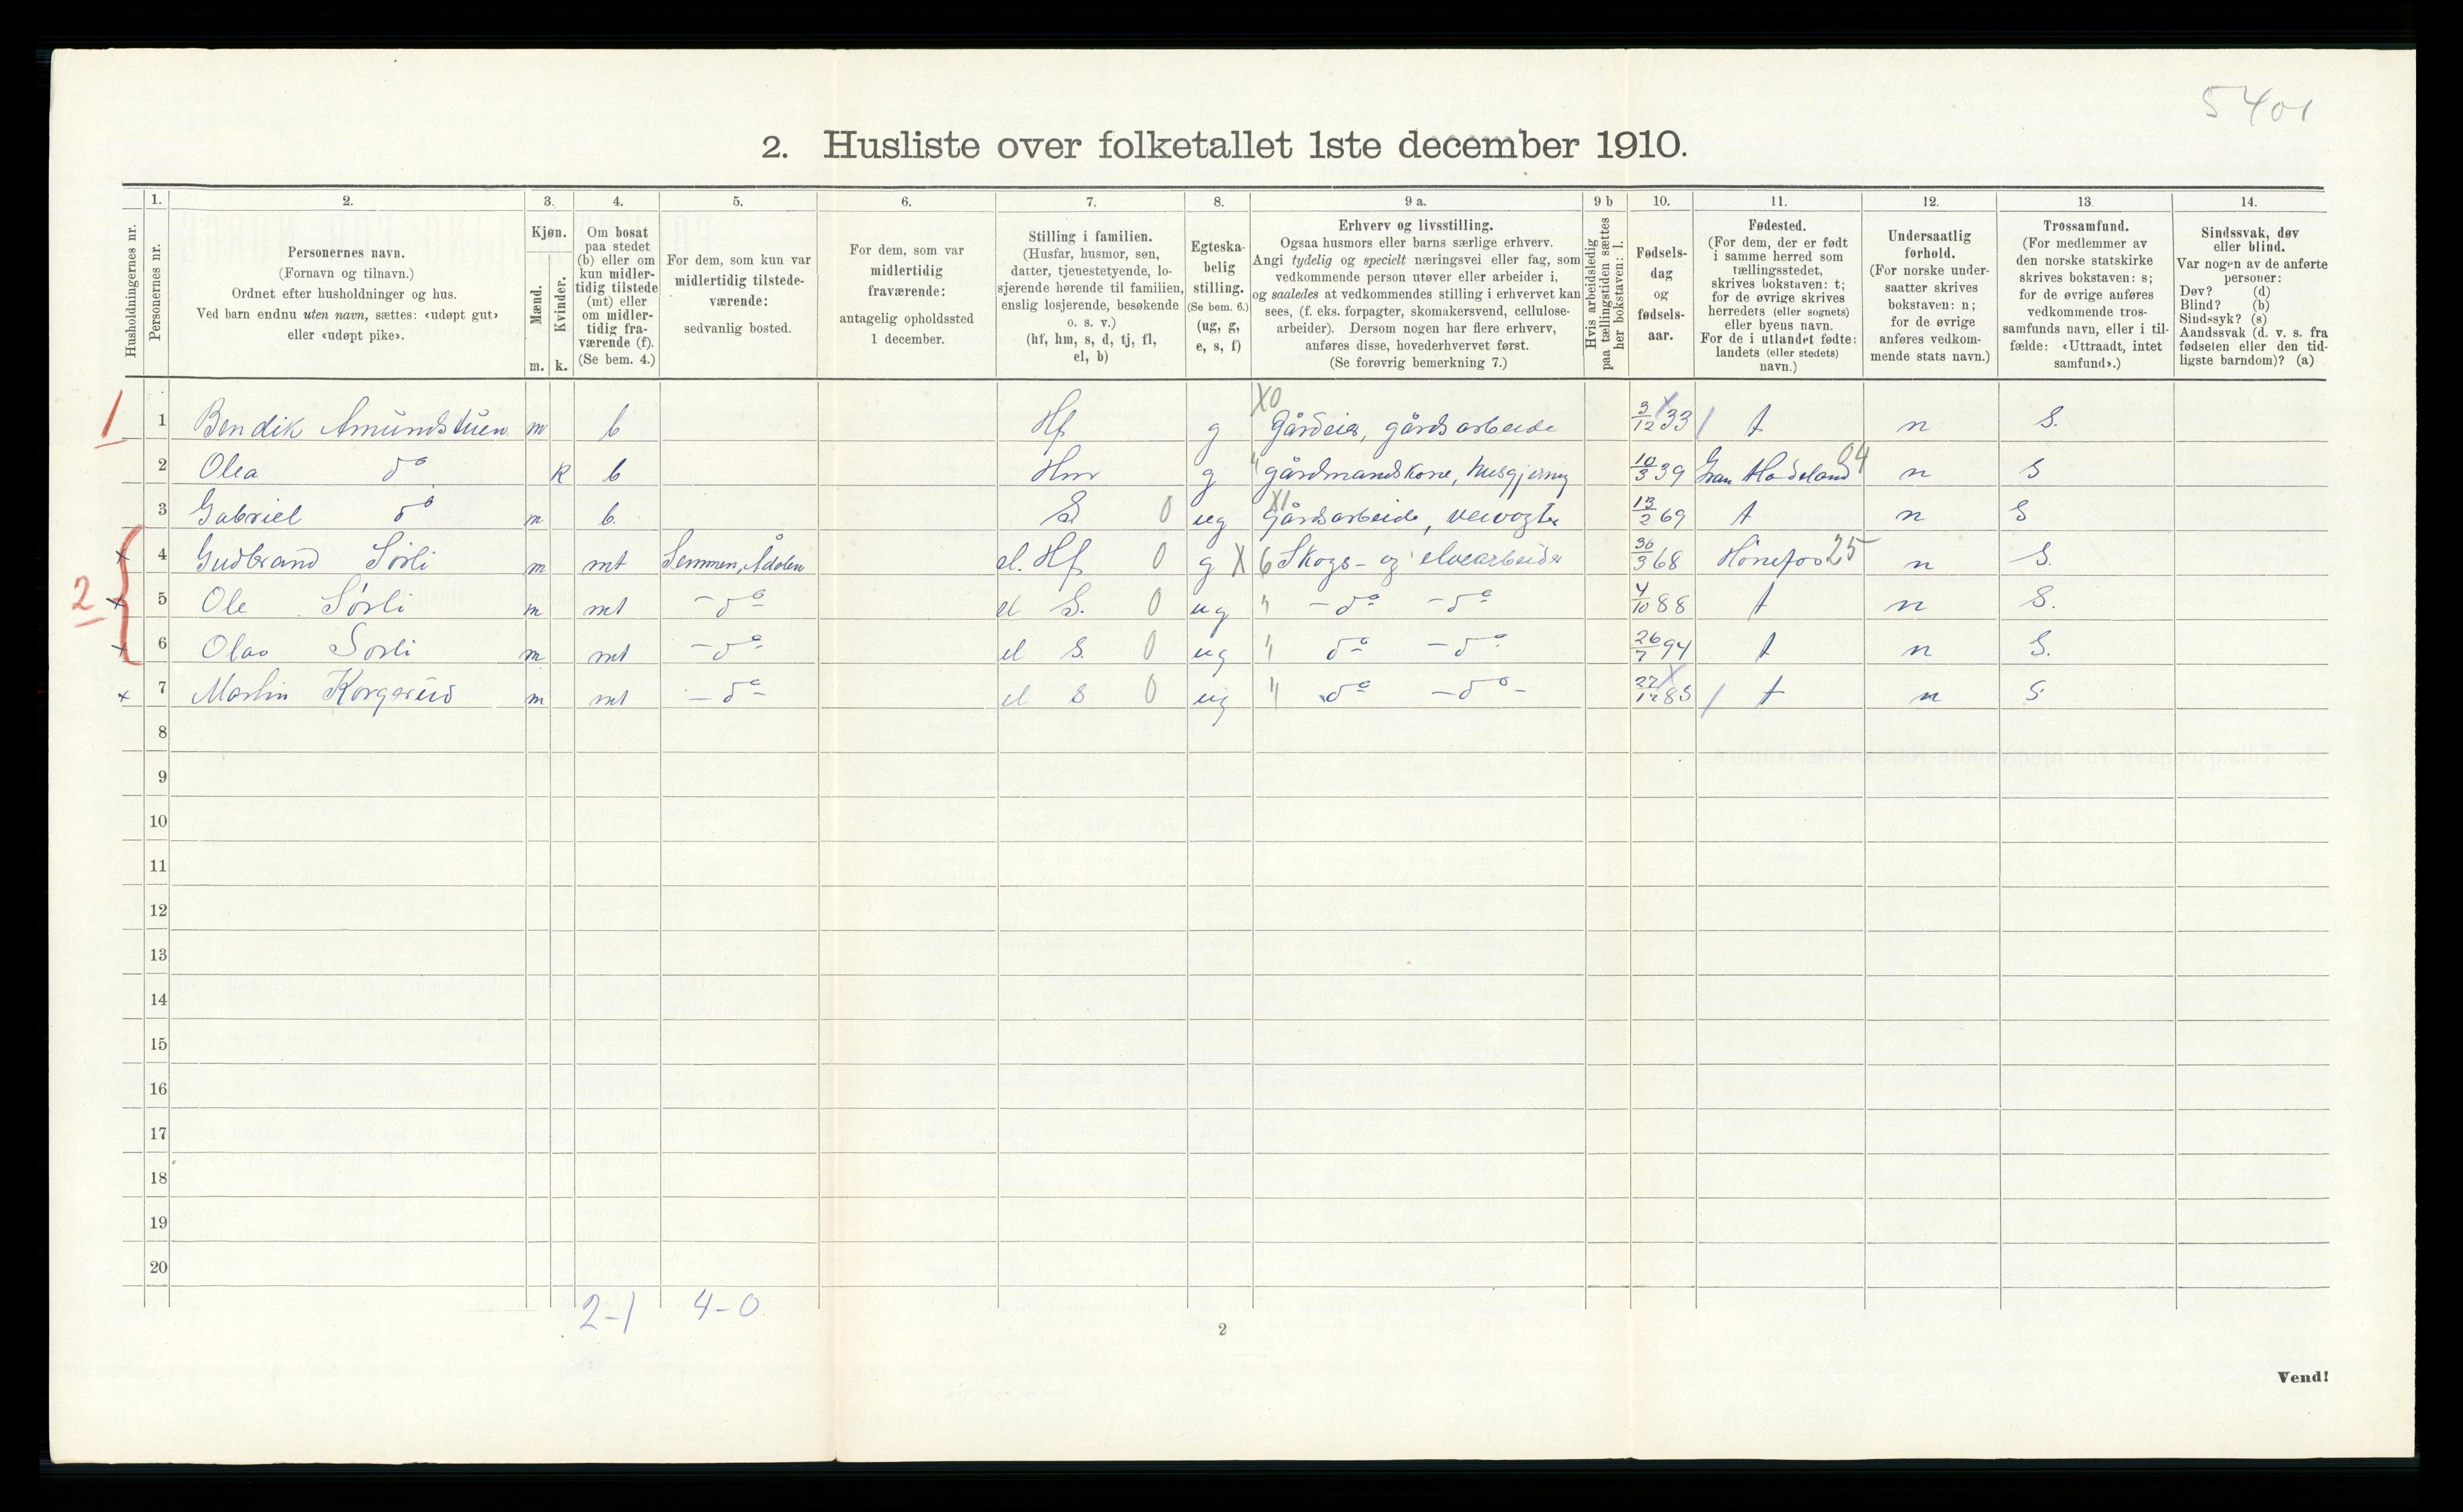 5401
2. Husliste over folketallet 1ste december 1910.
Husholdningernes nr.
1.
Personernes nr.
2.
Personernes navn.
(Fornavn og tilnavn.)
Ordnet efter husholdninger og hus.
Ved barn endnu uten navn, sættes: «udøpt gut»
eller «udøpt pike».
3.
Kjøn.
Mænd.
Kvinder.
m. k.
4.
Om bosat
paa stedet
(b) eller om
kun midler-
tidig tilstede
(mt) eller
om midler-
tidig fra-
værende (f).
(Se bem. 4.)
5.
For dem, som kun var
midlertidig tilstede-
værende:
sedvanlig bosted.
6.
For dem, som var
midlertidig
fraværende:
antagelig opholdssted
1 december.
7.
Stilling i familien.
(Husfar, husmor, søn,
datter, tjenestetyende, lo-
sjerende hørende til familien,
enslig losjerende, besøkende
o. s. v.)
(hf, hm, s, d, tj, fl,
el, b)
8.
Egteska-
belig
stilling.
(Se bem. 6.)
(ug, g,
e, s, f)
9 a.
Erhverv og livsstilling.
Ogsaa husmors eller barns særlige erhverv.
Angi tydelig og specielt næringsvei eller fag, som
vedkommende person utøver eller arbeider i,
og saaledes at vedkommendes stilling i erhvervet kan
sees, (f. eks. forpagter, skomakersvend, cellulose-
arbeider). Dersom nogen har flere erhverv,
anføres disse, hovederhvervet først.
(Se forøvrig bemerkning 7.)
9 b
Hvis arbeidsledig
paa tællingstiden sættes
her bokstaven: l.
10.
Fødsels-
dag
og
fødsels-
aar.
11.
Fødested.
(For dem, der er født
i samme herred som
tællingsstedet,
skrives bokstaven: t;
for de øvrige skrives
herredets (eller sognets)
eller byens navn.
For de i utlandet fødte:
landets (eller stedets)
navn.)
12.
Undersaatlig
forhold.
(For norske under-
saatter skrives
bokstaven: n;
for de øvrige
anføres vedkom-
mende stats navn.)
13
Trossamfund.
(For medlemmer av
den norske statskirke
skrives bokstaven: s;
for de øvrige anføres
vedkommende tros-
samfunds navn, eller i til-
fælde: «Uttraadt, intet
samfund».)
14.
Sindssvak, døv
eller blind.
Var nogen av de anførte
personer:
Døv? (d)
Blind? (b)
Sindssyk? (s)
Aandssvak (d. v. s. fra
fødselen eller den tid-
ligste barndom)? (a)
1 1 Bendik Amundstuen m b Hf g X0 Gårdeier, gårdsarbeide 3/12 33 t n S.
2 Olea do k b Hm g " gårdmandskone, husgjerning 10/3 39 Gran Hadeland 04 n S
3 Gabriel do m b. S. 0 ug X1 Gårdsarbeide, veivogter 13/2 69 t n S
2 x 4 Gudbrand Sørli m mt Semmen, Ådalen el. Hf 0 g X 6 Skogs- og elvearbeider 30/3 68 Hønefos 25 n S.
x 5 Ole Sørli m mt - do el S. 0 ug " - do - do 4/10 88 t n S.
x 6 Olav Sørli m mt - do - el S. 0 ug " do - do 26/7 94 t n S.
x 7 Martin Korgerud m mt - do - el S 0 ug " do - do - 27/12 85 t n S
8
9
10
11
12
13
14
15
16
17
18
19
20
2-1 4-0
2
Vend!